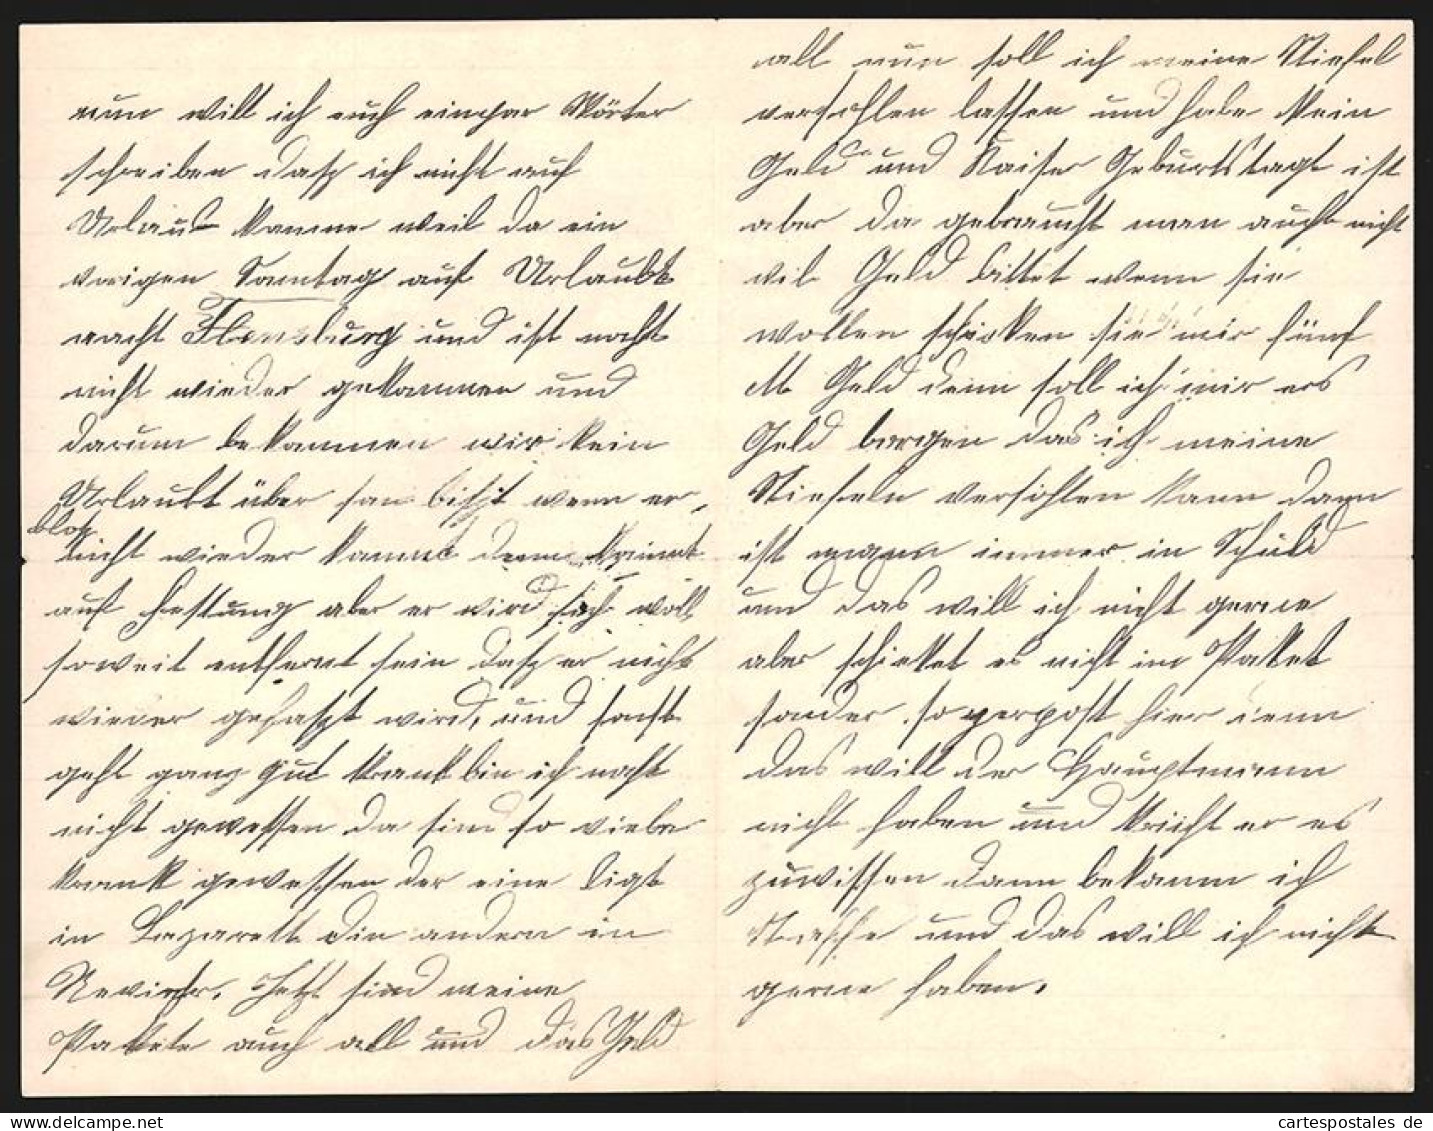 nun will ich euch einpar Wörter
schreiben dasz ich nicht auf
Urlaub komme weil da ein
vorigen Sonntag auf Urlaubt
nacht Flensburg und ist nocht
nicht wieder gekommen und
darum bekommen wir kein
Urlaubt über wenn er
blos
nicht wieder kommt denn kommt
auf Festung aber er wird sich woll
soweit entfernt sein dasz er nicht
wieder gefaszt wird, und sonst
geht ganz gut krank bin ich nocht
nicht gewessen da sind so viele
krank gewessen der eine ligt
in Lazarett die andern in
Revier. Jetzt sind meine
Pakete auch all und das Geld
all nun soll ich meine Stiefel
versohlen lassen und habe kein
Geld und Kaiser Geburtstagt ist
aber da gebraucht man aucht nicht
vil Geld bittet wenn sie
wollen schicken sie mir fünf
M Geld denn soll ich mir ers
Geld borgen das ich meine
Stiefeln versohlen kann dann
ist mann immer in Schuld
und das will ich nicht gerne
aber schicket es nicht im Paket
sonder so perpost hier denn
das will der Hauptmann
nicht haben und kricht er es
zuwissen dann bekomm ich
Strafe und das will ich nicht
gerne haben.
cartespostales de